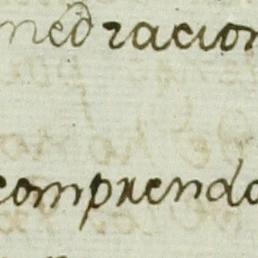 medracion
comprendo